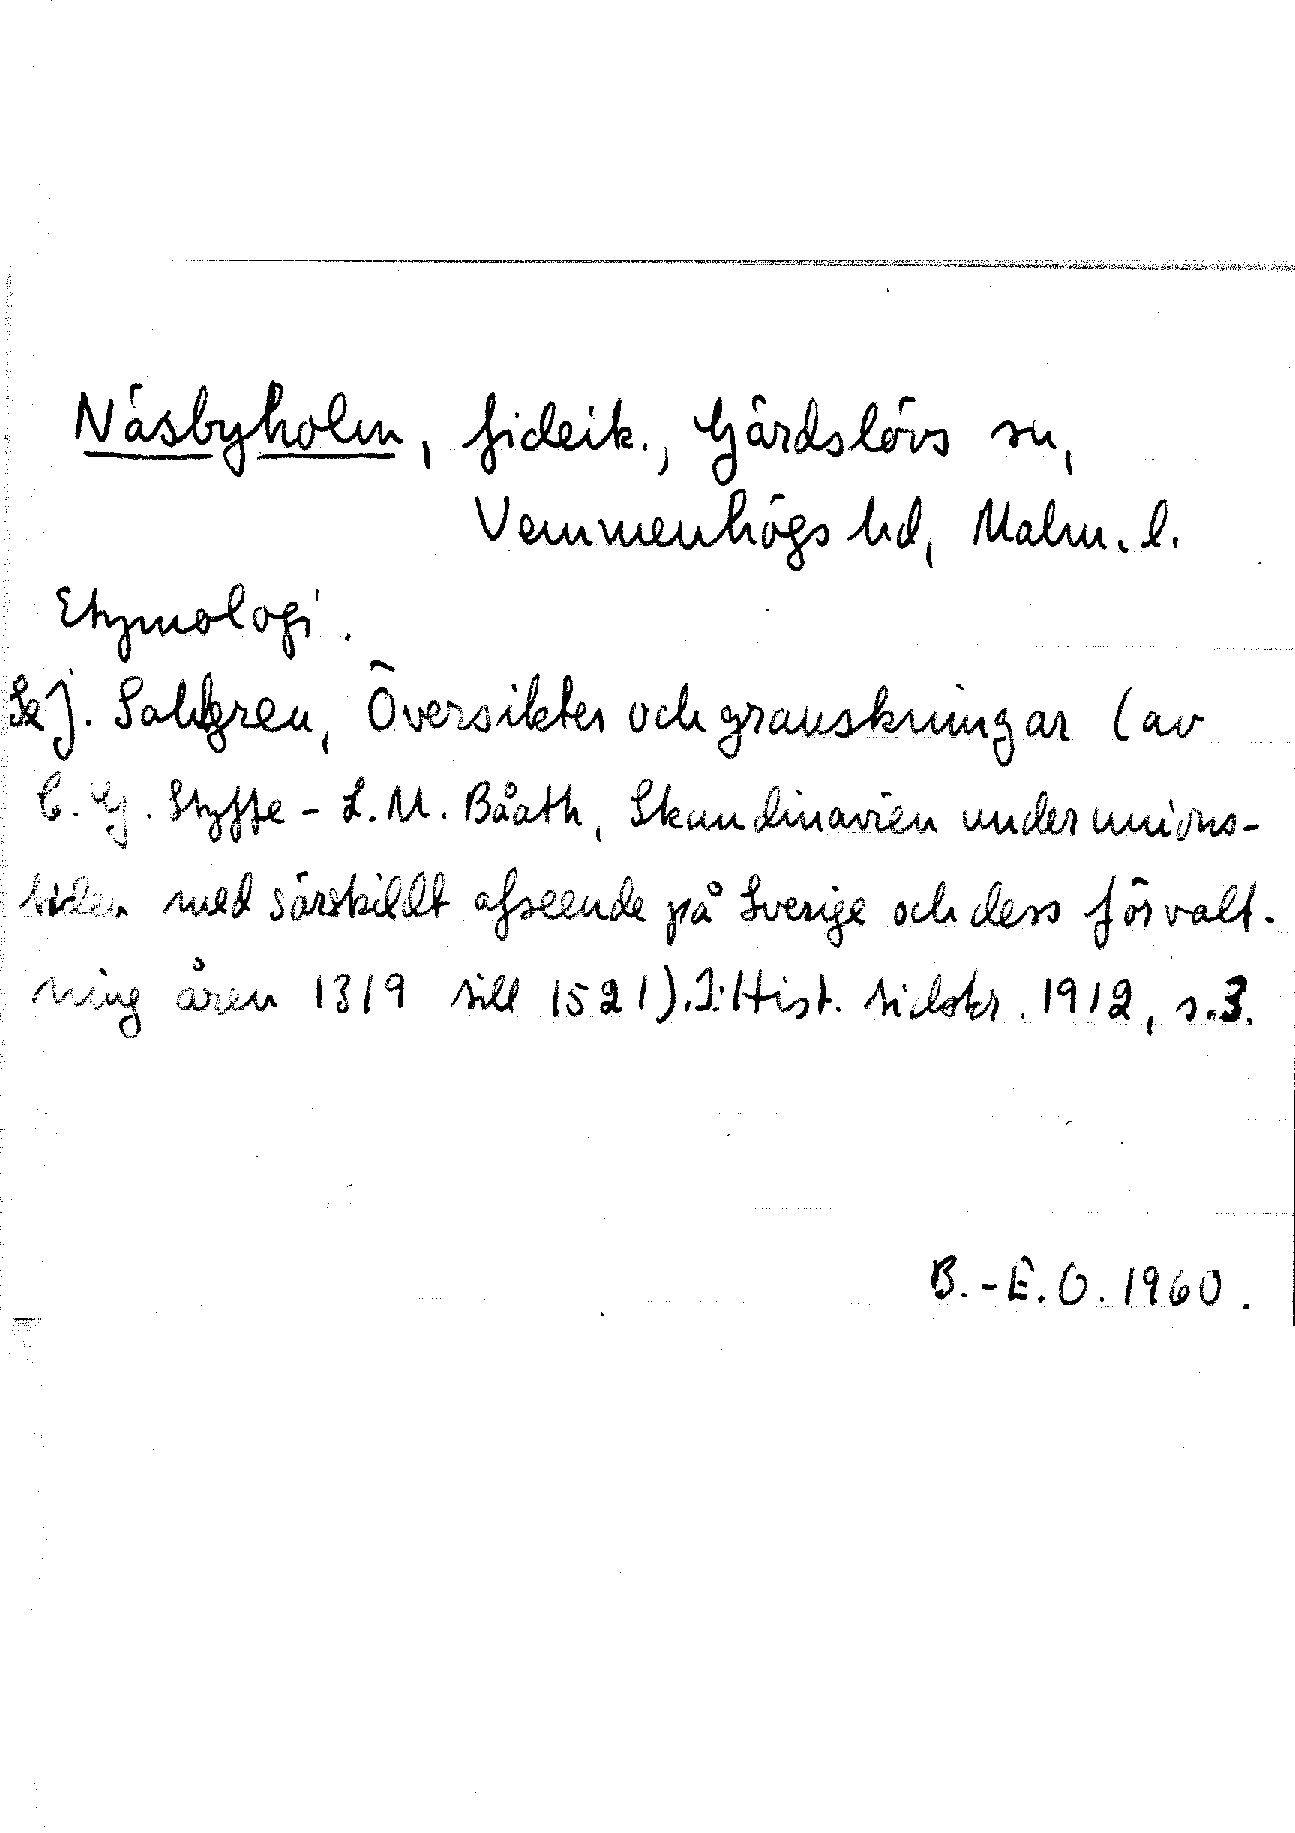 Näsbyholm, fideik., Gärdslövs sn,
Vemmenhögs hd, Malm. l.
Etymologi.
Se J. Sahlgren, Översikter och granskningar (av
C. G. Styffe - L. M. Bååth, Skandinavien under unions-
tiden med särskildt afseende på Sverige och dess förvalt-
ning åren 1319 till 1521). I: Hist. tidskr. 1912, s. 3.
B.-E. O. 1960.